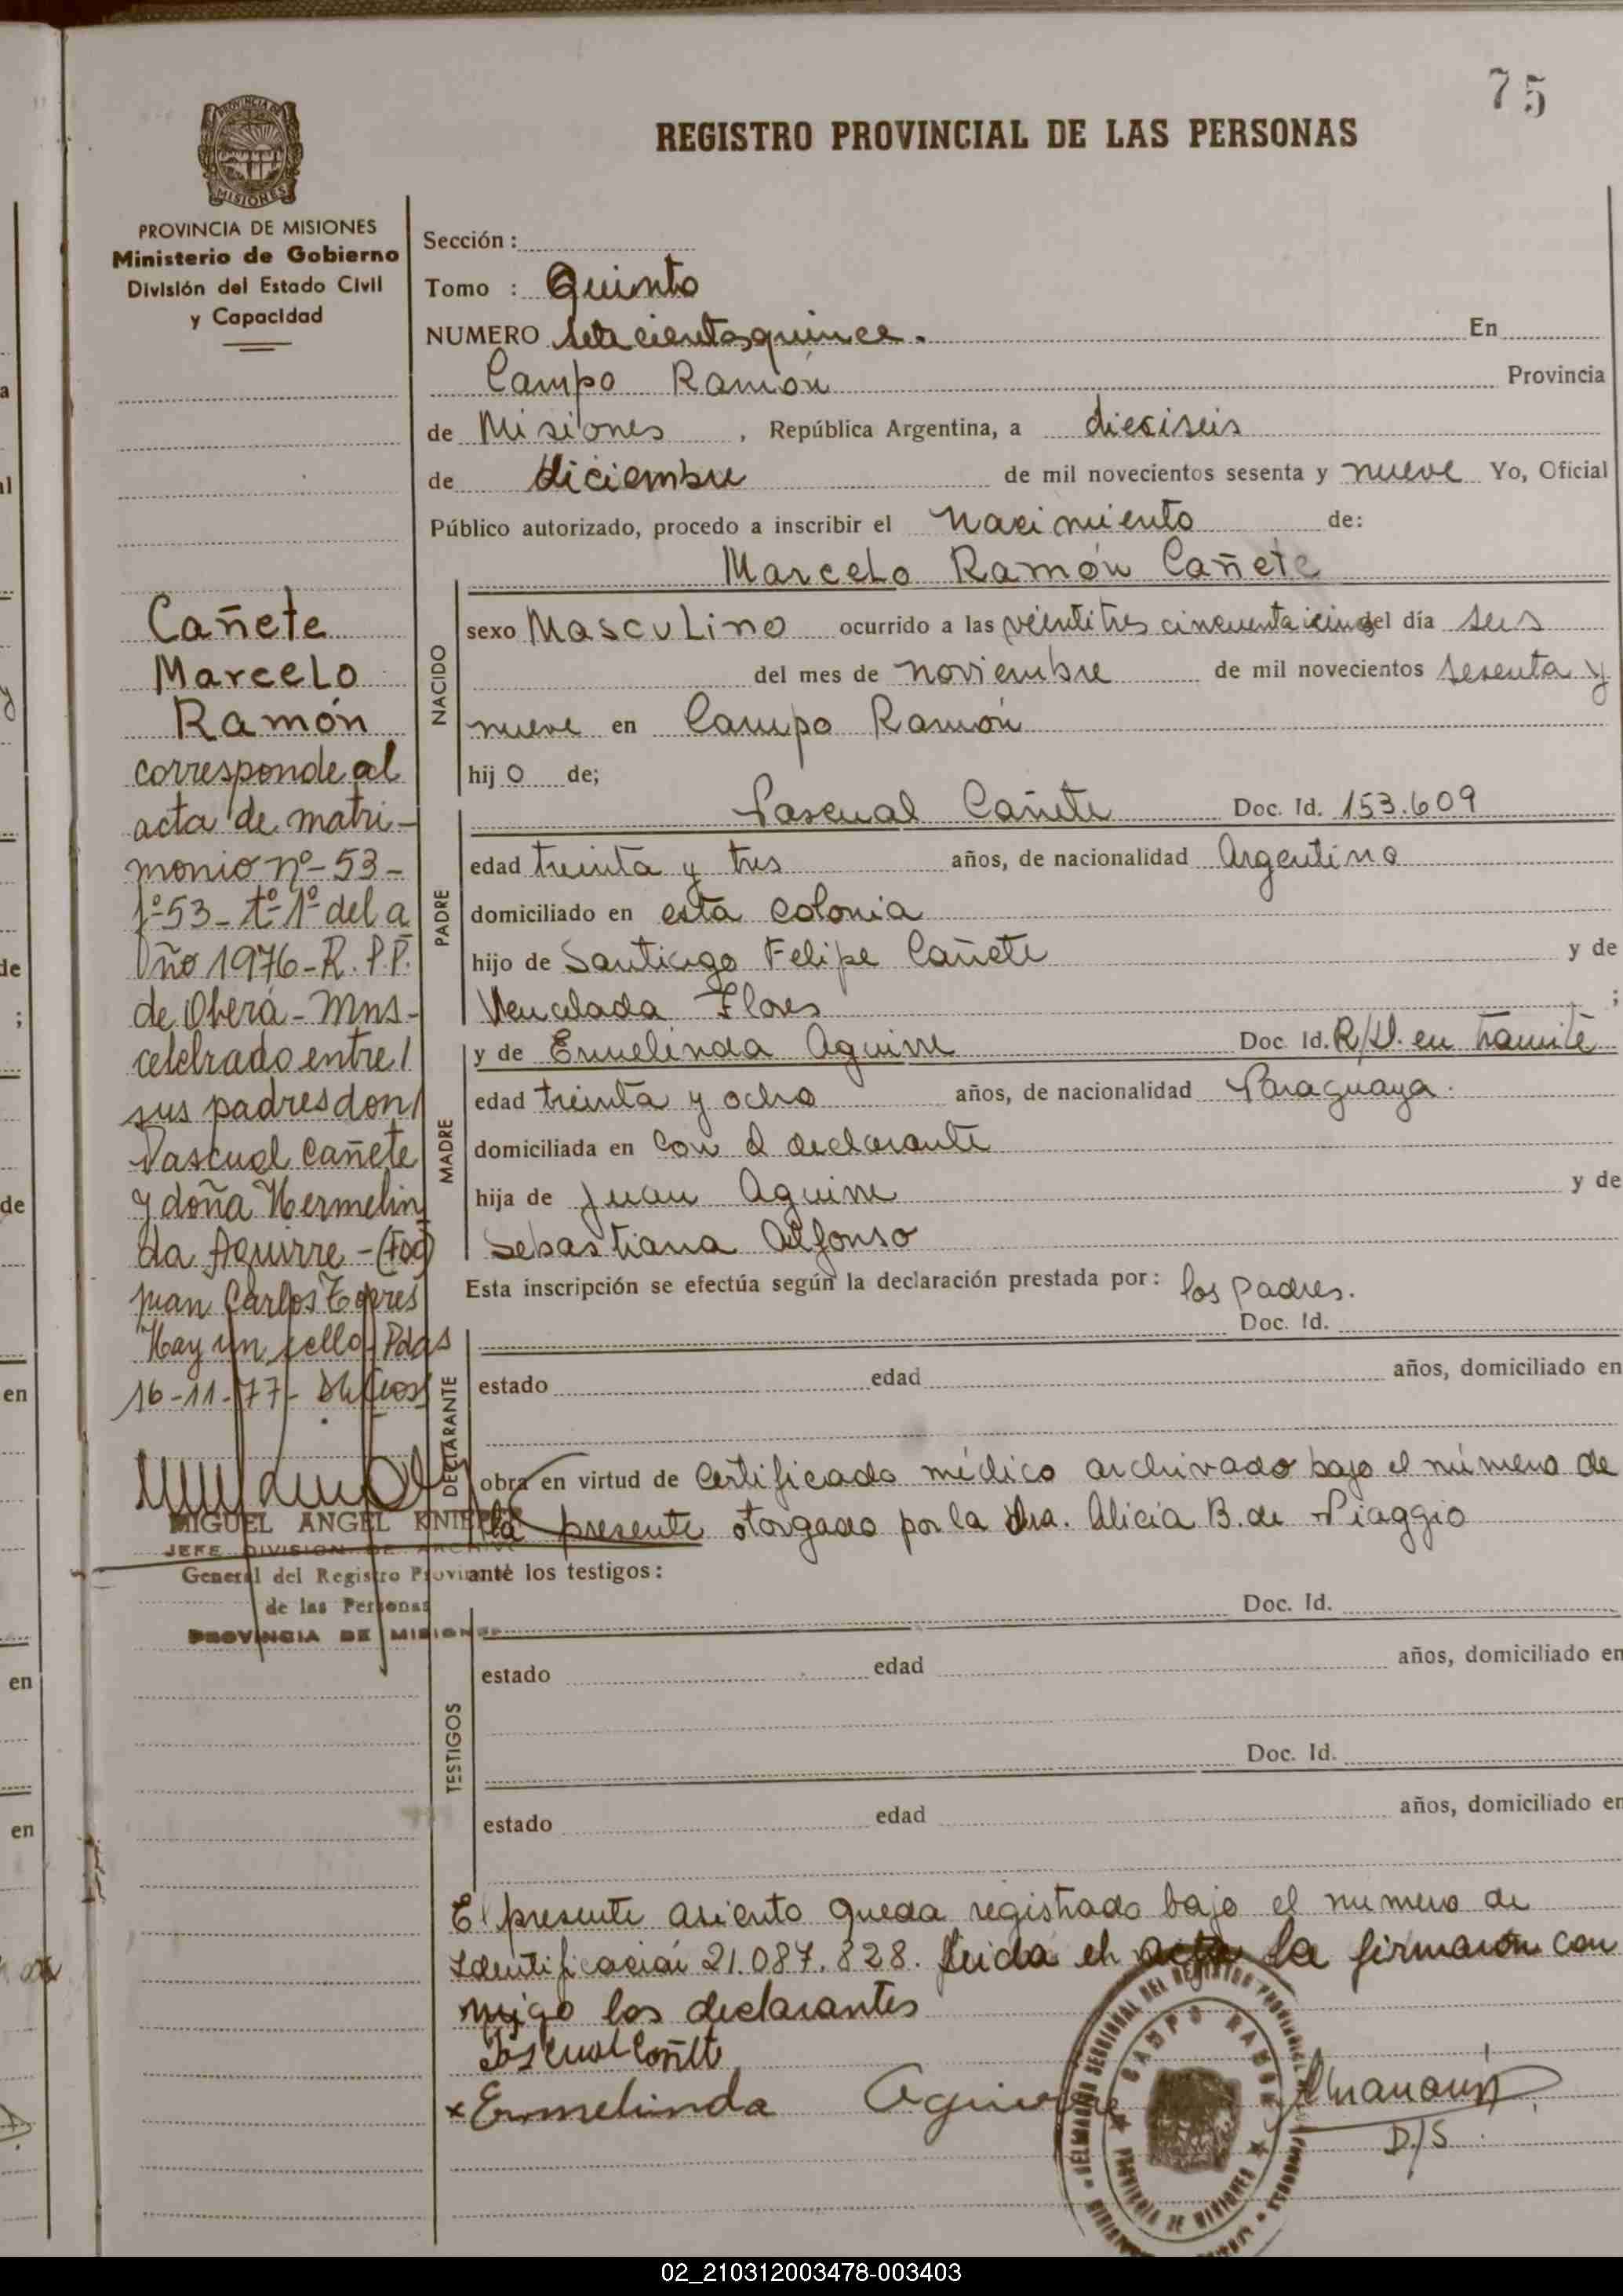 75
REGISTRO PROVINCIAL DE LAS PERSONAS
PROVINCIA DE MISIONES
PROVINCIA DE MISIONES
Ministerio de Gobierno
División del Estado Civil
y Capacidad
Cañete
Marcelo
Ramón
corresponde al
acta de matri-
monio nº-53-
fº-53-tº-1º del a
ño 1976-R.P.P.
de Oberá-Mns-
celebrado entre
sus padres don
Pascual Cañete
y doña Hermelin
da Aguirre-(Fdo)
Juan Carlos
Hay un sello Pdas
16-11-77-
MIGUEL ANGEL KNIE
JEFE DIVISION DE ARCHIVO
General del Registro Provin
de las Personas
PROVINCIA DE MISIONES
Sección :
Tomo : Quinto
NUMERO setecientos quince. En
Campo Ramón Provincia
de Misiones, República Argentina, a dieciseis
de diciembre de mil novecientos sesenta y nueve Yo, Oficial
Público autorizado, procedo a inscribir el Nacimiento de:
Marcelo Ramón Cañete
NACIDO
sexo Masculino ocurrido a las veintitres cincuenta icinco del día seis
del mes de noviembre de mil novecientos sesenta y
nueve en Campo Ramón
hij o de;
PADRE
Pascual Cañete Doc. Id. 153.609
edad treinta y tres años, de nacionalidad Argentino
domiciliado en esta colonia
hijo de Santiago Felipe Cañete y de
Venculada Flores ;
MADRE
y de Ermelinda Aguirre Doc Id. R/D. en tramite
edad treinta y ocho años, de nacionalidad Paraguaya.
domiciliada en con el declarante
hija de Juan Aguirre y de
Sebastiana Alfonso
Esta inscripción se efectúa según la declaración prestada por: los padres.
DECLARANTE
Doc. Id.
estado edad años, domiciliado en
obra en virtud de certificado médico archivado bajo el número de
la presente otorgado por la dra. Alicia B. de Piaggio
ante los testigos:
TESTIGOS
Doc. Id.
estado edad años, domiciliado en
Doc. Id.
estado edad años, domiciliado en
El presente asiento queda registrado bajo el numero de
Identificación 21.087.828. Leida el acta la firmaron con
migo los declarantes
Pascual Cañete
x Ermelinda Aguirre
D/S
DELEGACIÓN SECCIONAL DEL REGISTRO PROVINCIAL
CAMPO RAMON
PROVINCIA DE MISIONES
02_210312003478-003403